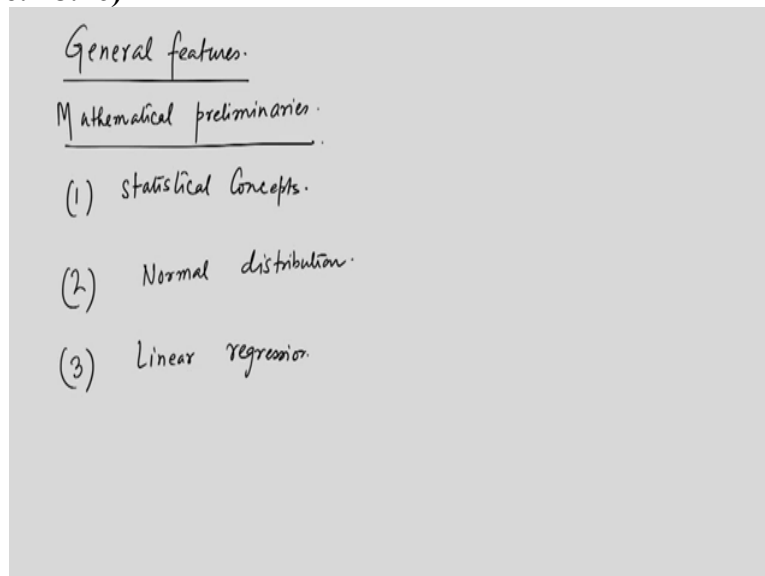 General features.
Mathematical preliminaries.
(1) Statistical Concepts.
(2) Normal distribution.
(3) Linear regression.